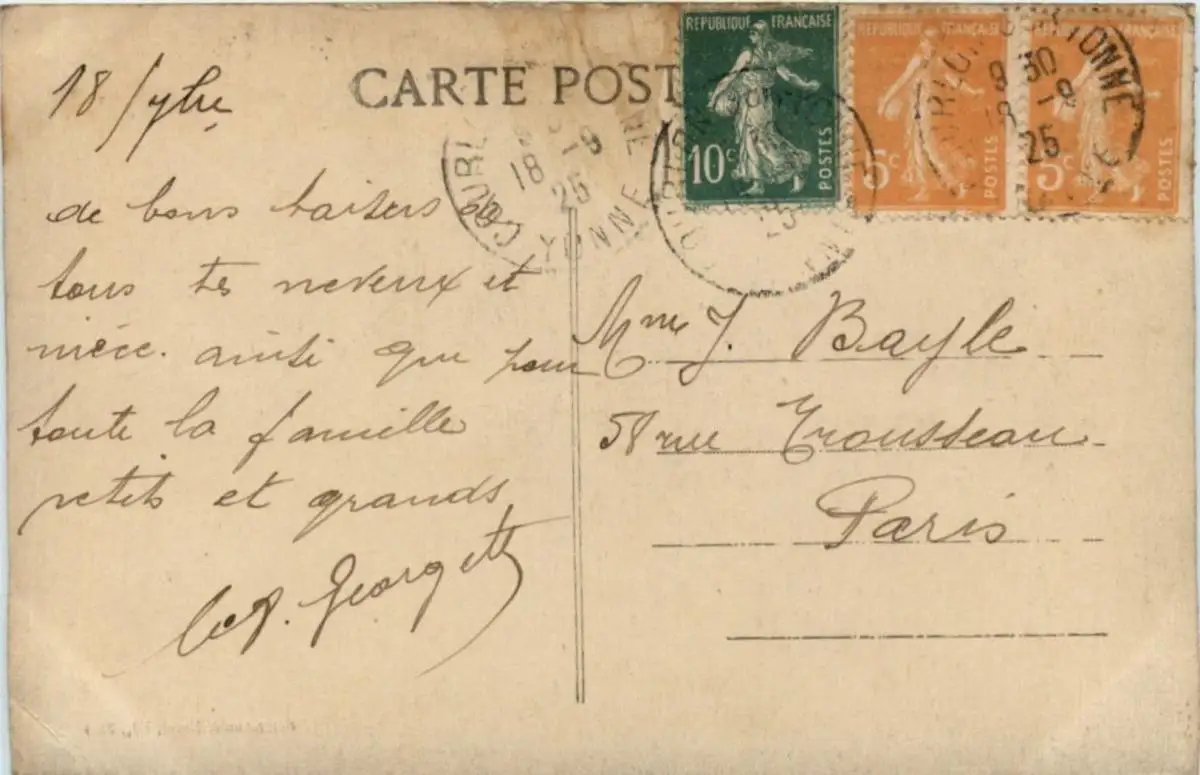 CARTE POST
REPUBLIQUE FRANÇAISE
10c
POSTES
REPUBLIQUE FRANÇAISE
5c
POSTES
REPUBLIQUE FRANÇAISE
5c
POSTES
COURLON
YONNE
18 -9
25
9 30
18 -9
25
YONNE
18 / 7bre
de bons baisers de
tous tes neveux et
nièce. ainsi que pour
toute la famille
petits et grands
Georgette
Mme J. Bayle
rue Trousseau
Paris